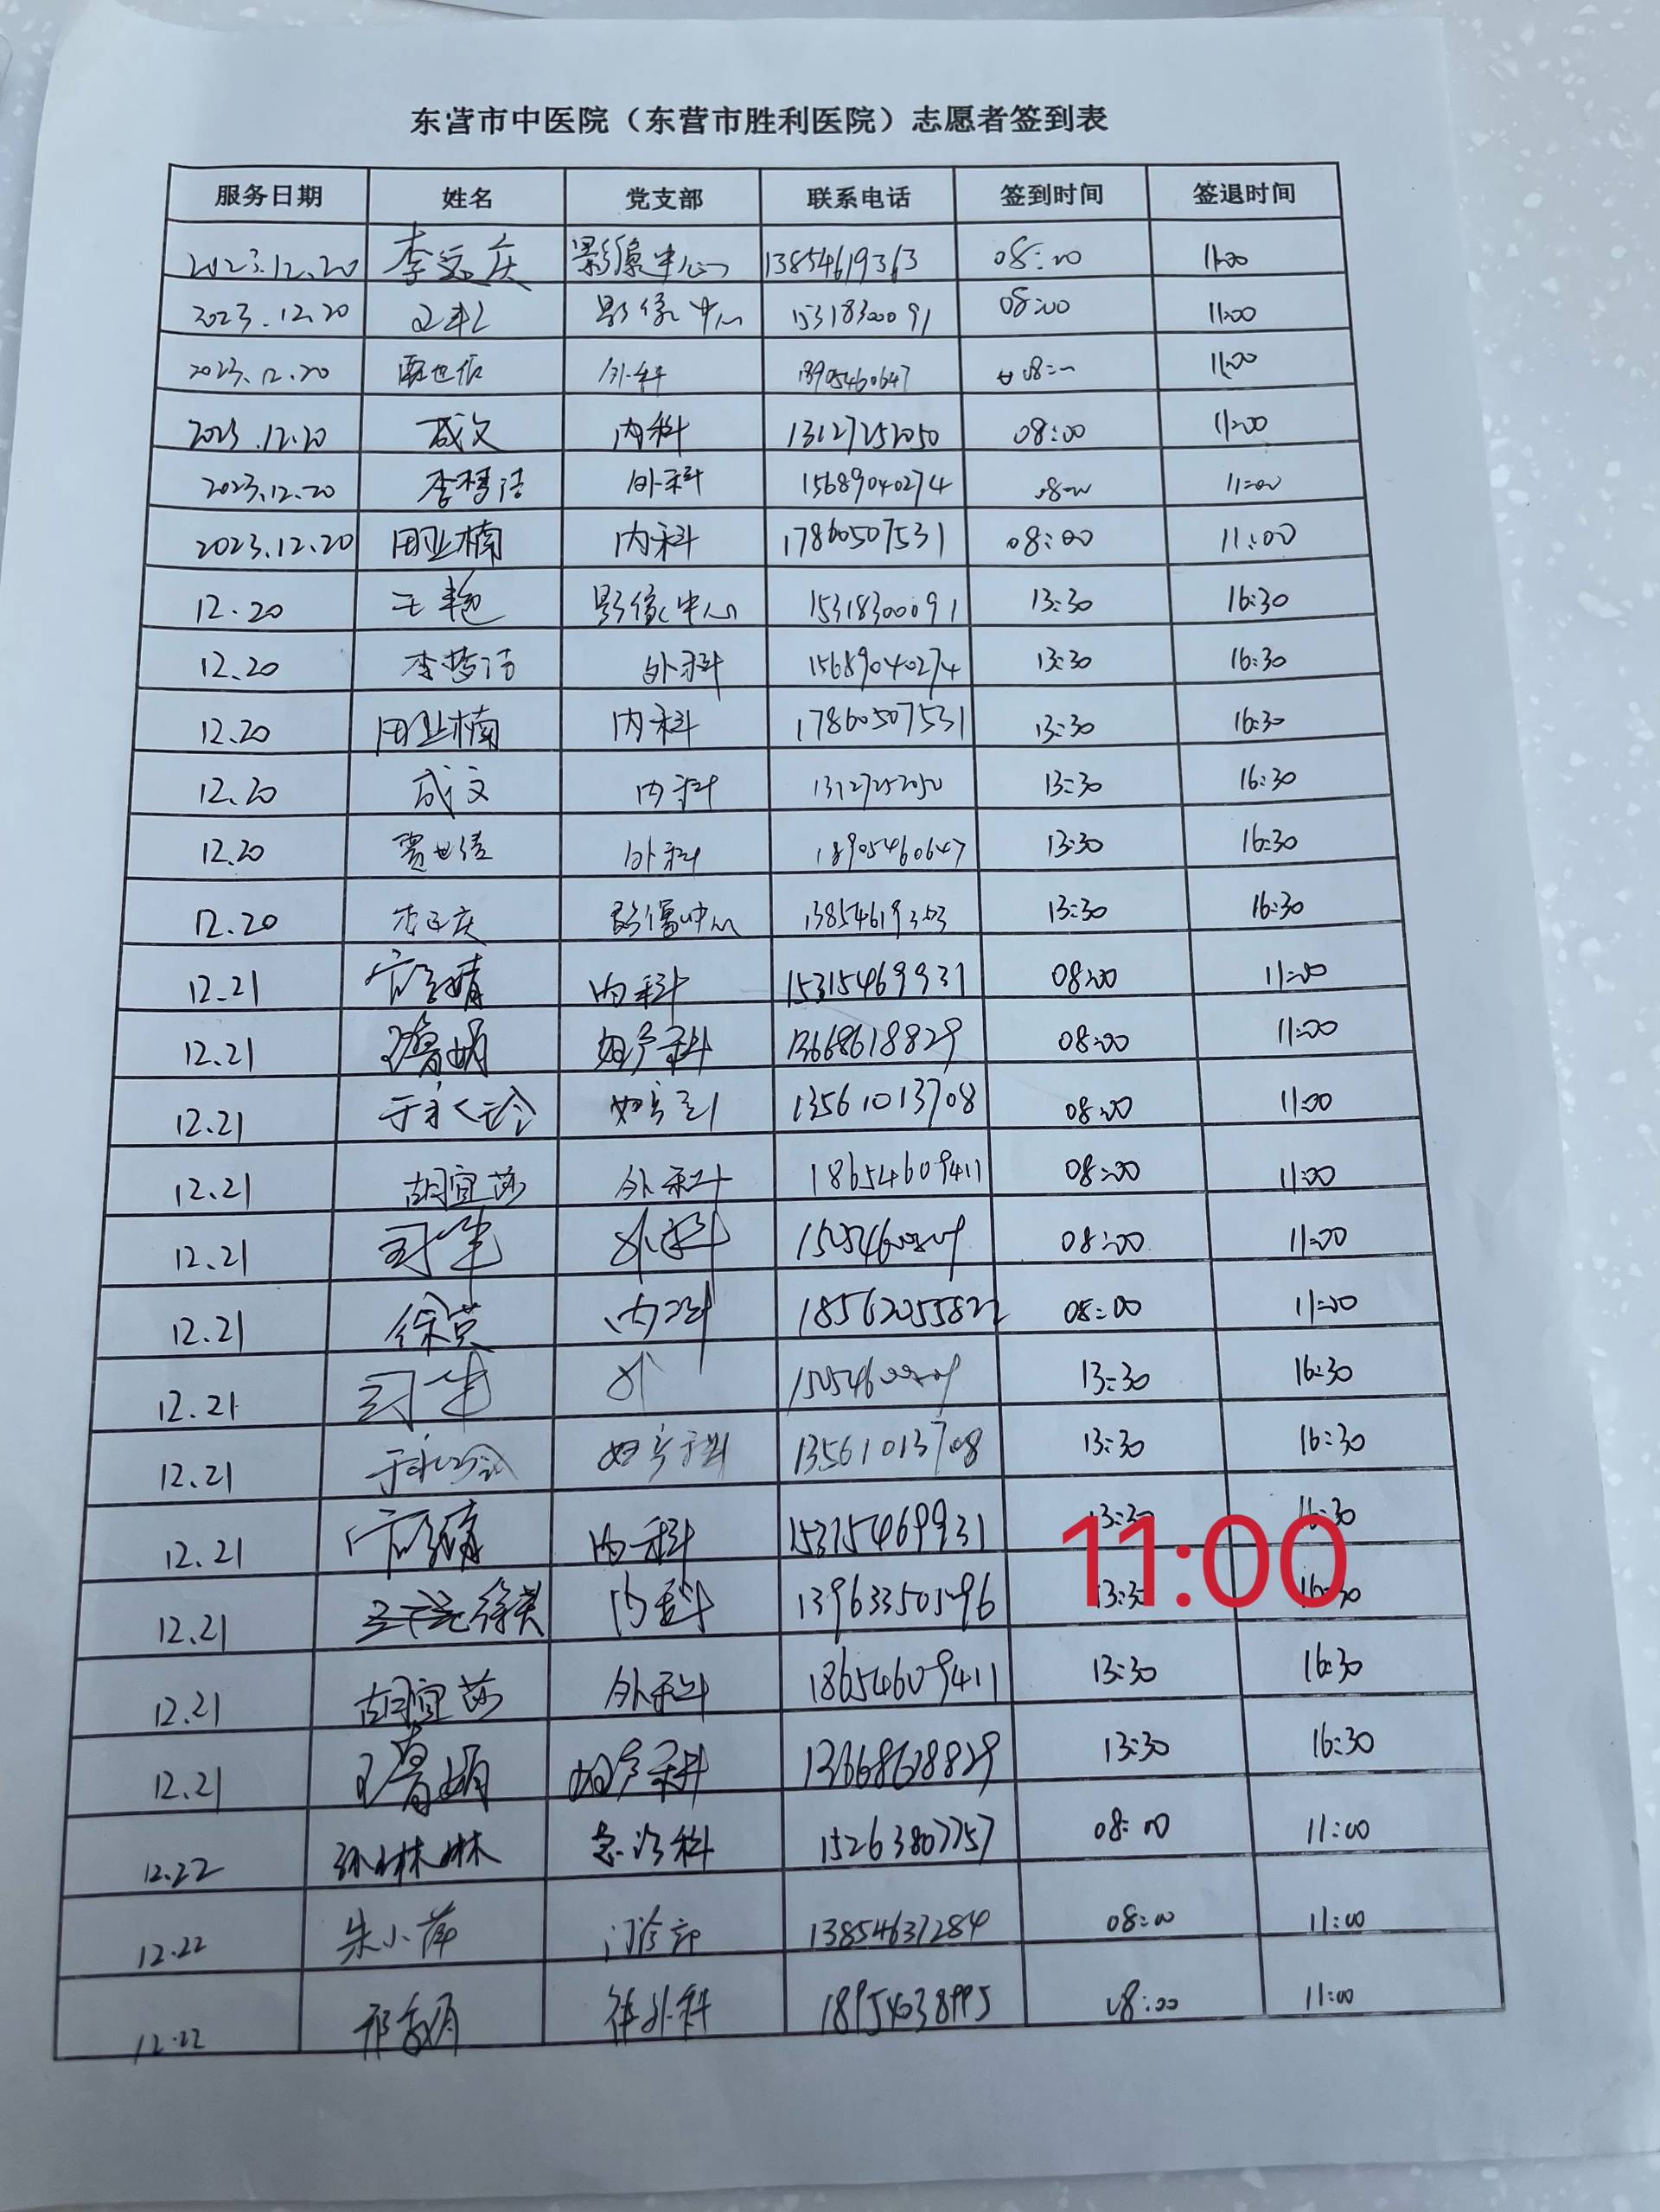 东营市中医院（东营市胜利医院）志愿者签到表
服务日期 姓名 党支部 联系电话 签到时间 签退时间
2023.12.20 李 庆 影像中心 13854619363 08:00 11:00
2023.12.20 王艳 影像中心 15318300091 08:00 11:00
2023.12.20 贾世佳 外科 18905460647 08:00 11:00
2023.12.20 成文 内科 13127252050 08:00 11:00
2023.12.20 李梦洁 外科 15689040274 08:00 11:00
2023.12.20 田业楠 内科 17860507531 08:00 11:00
12.20 王艳 影像中心 15318300091 13:30 16:30
12.20 李梦洁 外科 15689040274 13:30 16:30
12.20 田业楠 内科 17860507531 13:30 16:30
12.20 成文 内科 13127252050 13:30 16:30
12.20 贾世佳 外科 18905460647 13:30 16:30
12.20 影像中心 13:30 16:30
12.21 内科 15315469931 08:00 11:00
12.21 王鲁娟 妇产科 13668618829 08:00 11:00
12.21 于永玲 妇产科 13561013708 08:00 11:00
12.21 胡宜莎 外科 18654609411 08:00 11:00
12.21 外科 08:00 11:00
12.21 徐英 内科 18562055822 08:00 11:00
12.21 外 13:30 16:30
12.21 于永玲 妇产科 13561013708 13:30 16:30
12.21 内科 15315469931 13:30 16:30
11:00
12.21 徐英 内科 13963350596 13:30 16:30
12.21 胡宜莎 外科 18654609411 13:30 16:30
12.21 王鲁娟 妇产科 13668618829 13:30 16:30
12.22 孙琳琳 急诊科 15263807757 08:00 11:00
12.22 朱小萍 门诊部 13854637284 08:00 11:00
12.22 外科 08:00 11:00